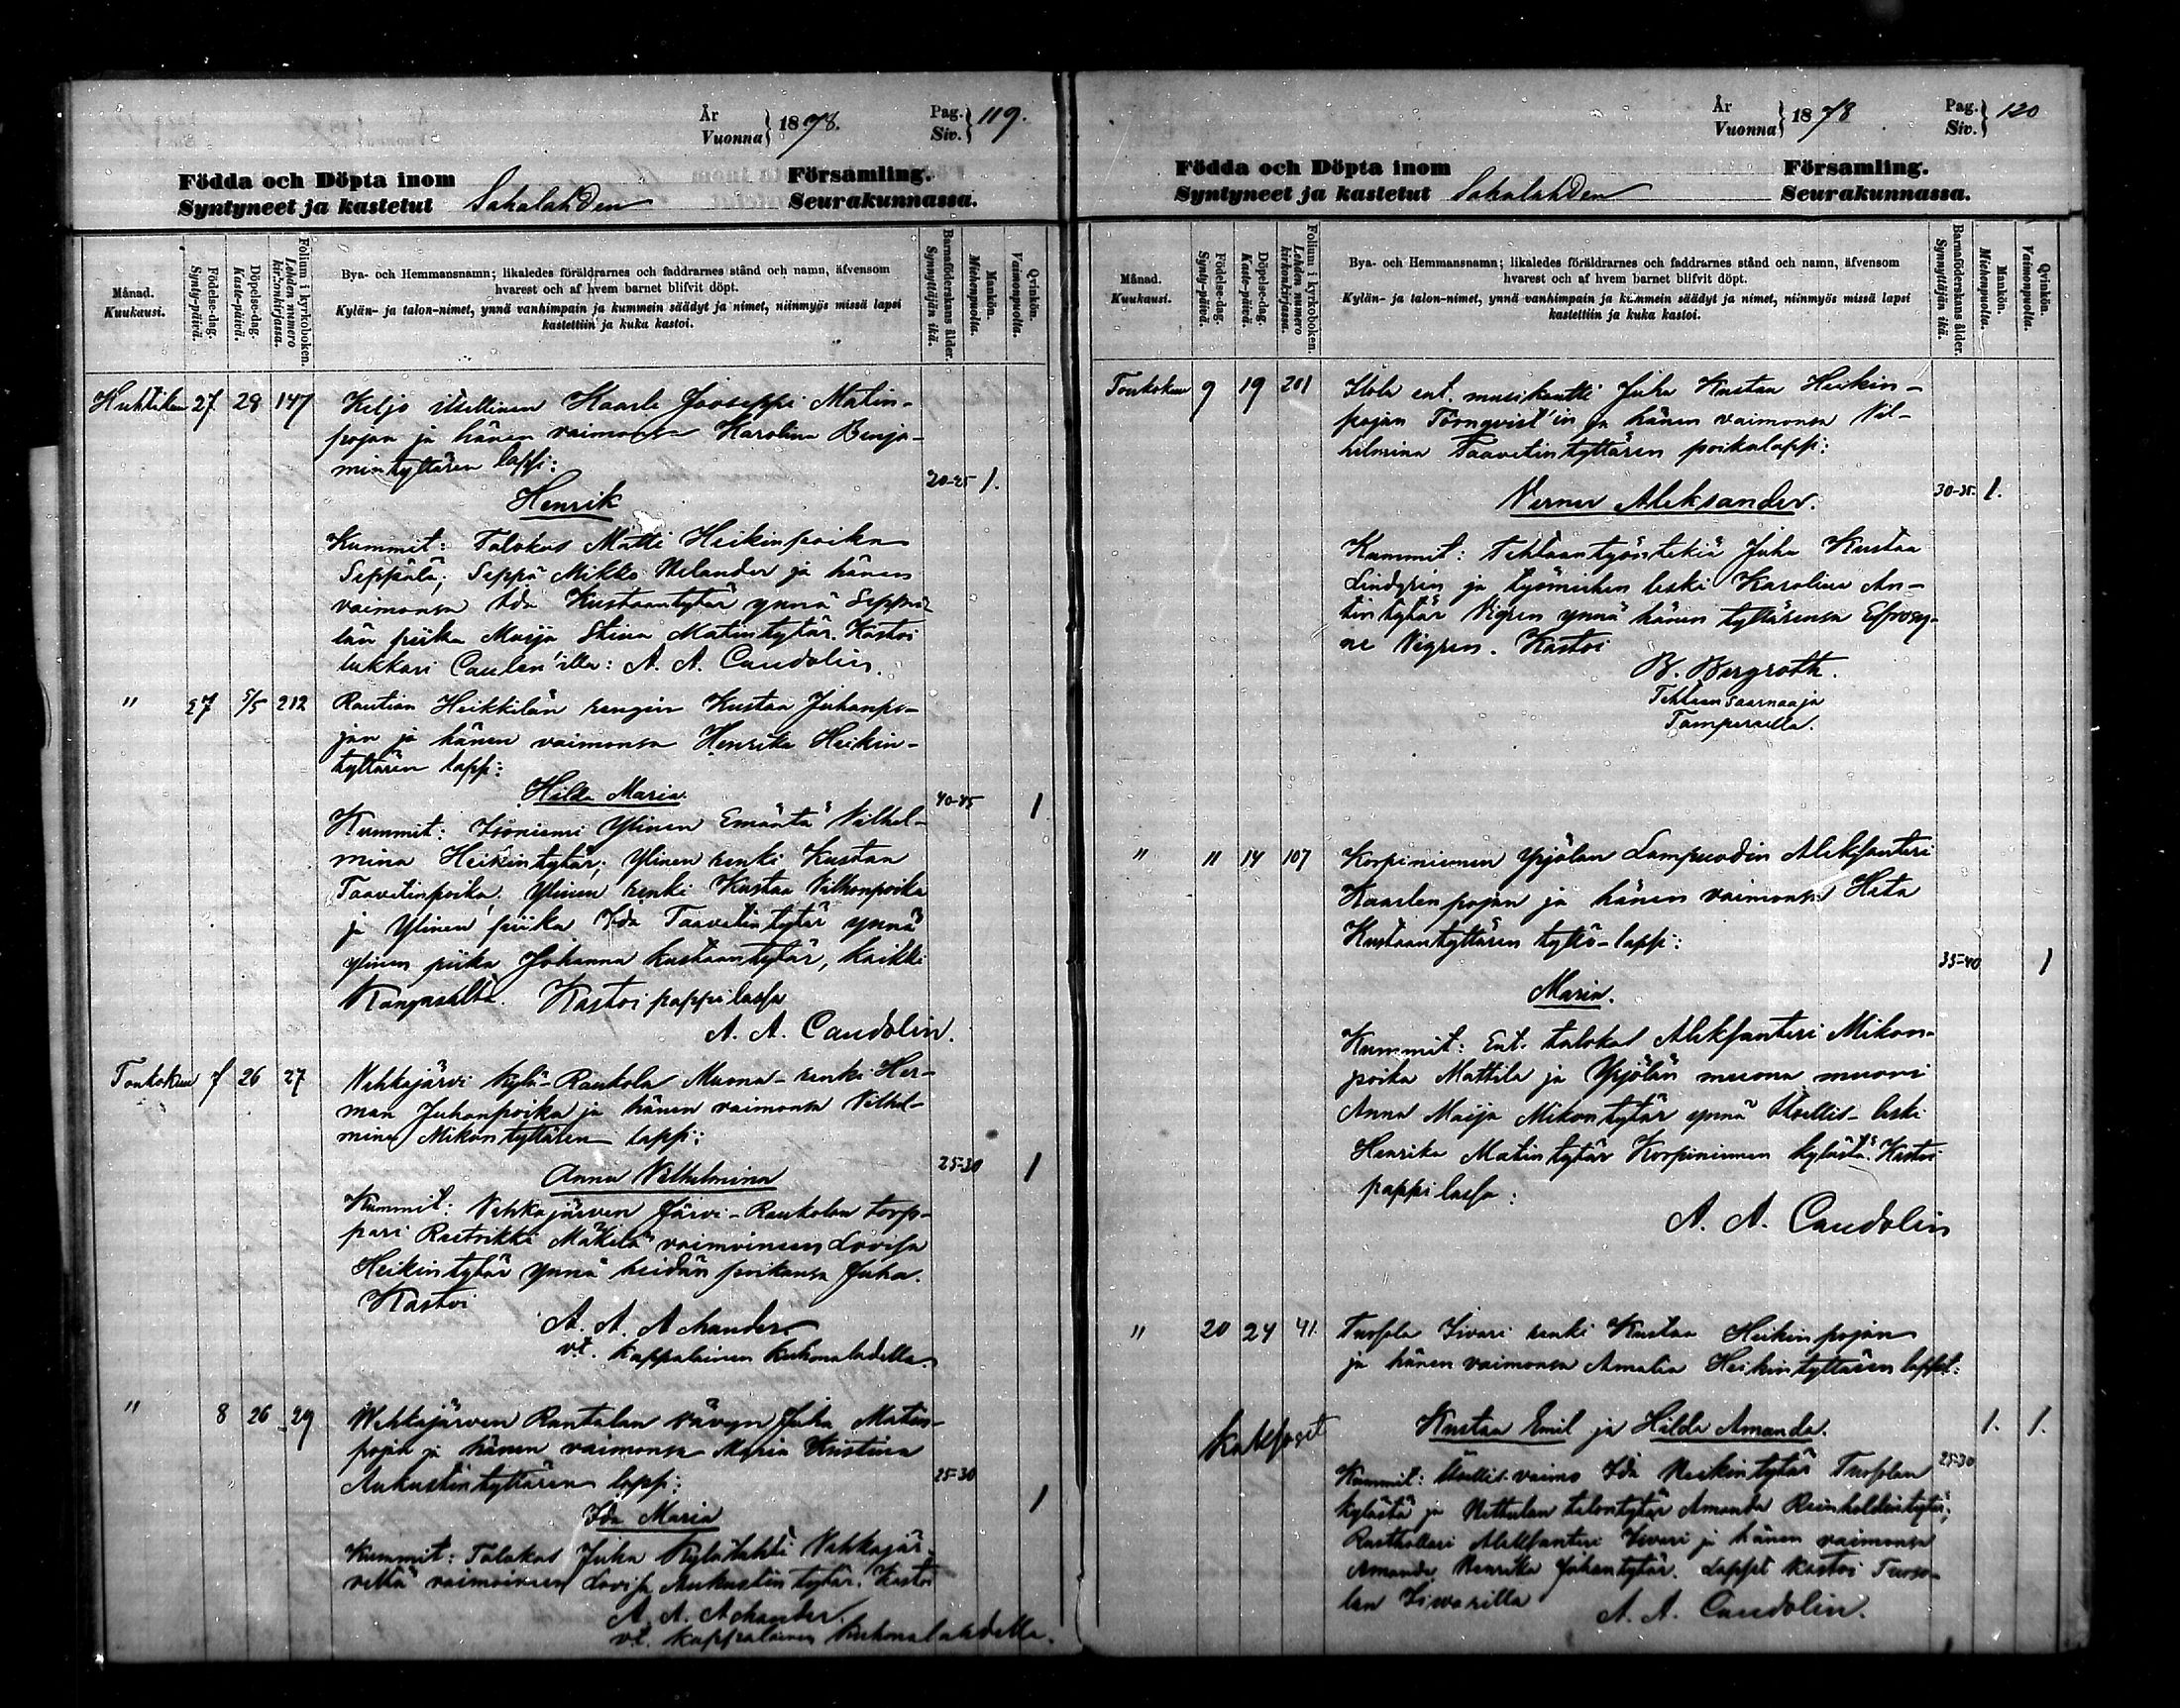 År
Vuonna } 1878.
Pag.
Siv. } 119.
Födda och Döpta inom Församling.
Syntyneet ja kastetut Sahalahden Seurakunnassa.
Månad.
Kuukausi.
Födelse-dag.
Synty-päivä.
Döpelse-dag.
Kaste-päivä.
Folium i kyrkoboken.
Lehden numero
kirkonkirjassa.
Bya- och Hemmansnamn; likaledes föräldrarnes och faddrarnes stånd och namn, äfvensom
hvarest och af hvem barnet blifvit döpt.
Kylän- ja talon-nimet, ynnä vanhimpain ja kummein säädyt ja nimet, niinmyös missä lapsi
kastettiin ja kuka kastoi.
Barnaföderskans ålder.
Synnyttäjän ikä.
Mankön.
Miehenpuolta.
Qvinkön.
Vaimonpuolta.
Huhtikuu 27 28 147 Keljo itsellinen Kaarle Jooseppi Matin-
pojan ja hänen vaimonsa Karolina Benja-
mintyttären lapsi:
Henrik 20-25 1.
Kummit: Talokas Matti Heikinpoika
Seppälä; Seppä Mikko Melander ja hänen
vaimonsa Ida Kustaantytär ynnä Seppä-
län piika Maija Stiina Matintytär. Kastoi
lukkari Caulen'illa: A. A. Caudolin.
" 27 5/5 212 Rautian Heikkilän rengin Kustaa Juhanpo-
jan ja hänen vaimonsa Henrika Heikin-
tyttären lapsi:
Hilda Maria. 40-45 1
Kummit: Isoniemi Ylinen Emäntä Vilhel-
mina Heikintytär; Ylinen renki Kustaa
Taavetinpoika, Ylinen renki Kustaa Vilhonpoika
ja Ylinen piika Ida Taavetintytär ynnä
Ylinen piika Johanna Kustaantytär, kaikki
Kangasalta. Kastoi pappilassa
A. A. Caudolin.
Toukokuu 7 26 27 Vehkajärvi kylä-Raukola Muona-renki Her-
man Juhanpoika ja hänen vaimonsa Vilhel-
mina Mikontyttären lapsi:
Anna Vilhelmina 25-30 1
Kummit: Vehkajärven Järvi-Raukolan torp-
pari Mäkelä vaimoineen Lovisa
Heikintytär ynnä heidän poikansa Juha.
Kastoi
A. A. Achander
vt. kappalainen Kuhmalahdella.
" 8 26 29 Wehkajärven Rantalan vävyn Juha Matin-
pojan ja hänen vaimonsa Maria Kristiina
Aukustintyttären lapsi: 25-30
Ida Maria 1
Kummit: Talokas Juha Vehkajär-
veltä vaimoineen Lovisa Aukustintytär. Kastoi
A. A. Achander.
vt. kappalainen Kuhmalahdella.
År
Vuonna } 1878
Pag.
Siv. } 120
Födda och Döpta inom Församling.
Syntyneet ja kastetut Sahalahden Seurakunnassa.
Månad.
Kuukausi.
Födelse-dag.
Synty-päivä.
Döpelse-dag.
Kaste-päivä.
Folium i kyrkoboken.
Lehden numero
kirkonkirjassa.
Bya- och Hemmansnamn; likaledes föräldrarnes och faddrarnes stånd och namn, äfvensom
hvarest och af hvem barnet blifvit döpt.
Kylän- ja talon-nimet, ynnä vanhimpain ja kummein säädyt ja nimet, niinmyös missä lapsi
kastettiin ja kuka kastoi.
Barnaföderskans ålder.
Synnyttäjän ikä.
Mankön.
Miehenpuolta.
Qvinkön.
Vaimonpuolta.
Toukokuu 9 19 201 ent. musikantti Juha Kustaa Heikin-
pojan Törnqvist'in ja hänen vaimonsa Vil-
helmina Taavetintyttären poikalapsi:
Verner Aleksander. 30-35 1.
Kummit: Tehtaantyöntekiä Juha Kustaa
Lindgrin ja työmiehen leski Karolina An-
tintytär Vigren ynnä hänen tyttärensa Efrosy-
ne Vigren. Kastoi
B. Bergroth.
Tehtaan saarnaaja
Tampereella.
" 11 14 107 Korpiniemen Yrjölän Lampuodin Aleksanteri
Kaarlenpojan ja hänen vaimonsa Heta
Kustaantyttären tyttö-lapsi:
35-40 1
Maria.
Kummit: Ent. talokas Aleksanteri Mikon-
poika Mattila ja Yrjölän muona muori
Anna Maija Mikontytär ynnä Itsellis-leski
Henrika Matintytär Korpiniemen kylästä. Kastoi
pappilassa:
A. A. Caudolin
" 20 24 41. Tursola Iivari renki Kustaa Heikinpojan
ja hänen vaimonsa Amalia Heikintyttären lapset:
Kaksoset Kustaa Emil ja Hilda Amanda. 1. 1.
25-30
Kummit: Itsellis-vaimo Ida Heikintytär Tursolan
kylästä ja talontytär Amanda Reinholdintytär;
Rusthollari Aleksanteri Iivari ja hänen vaimonsa
Amanda Henrika Juhantytär. Lapset kastoi Turso-
lan Iivarilla A. A. Caudolin.